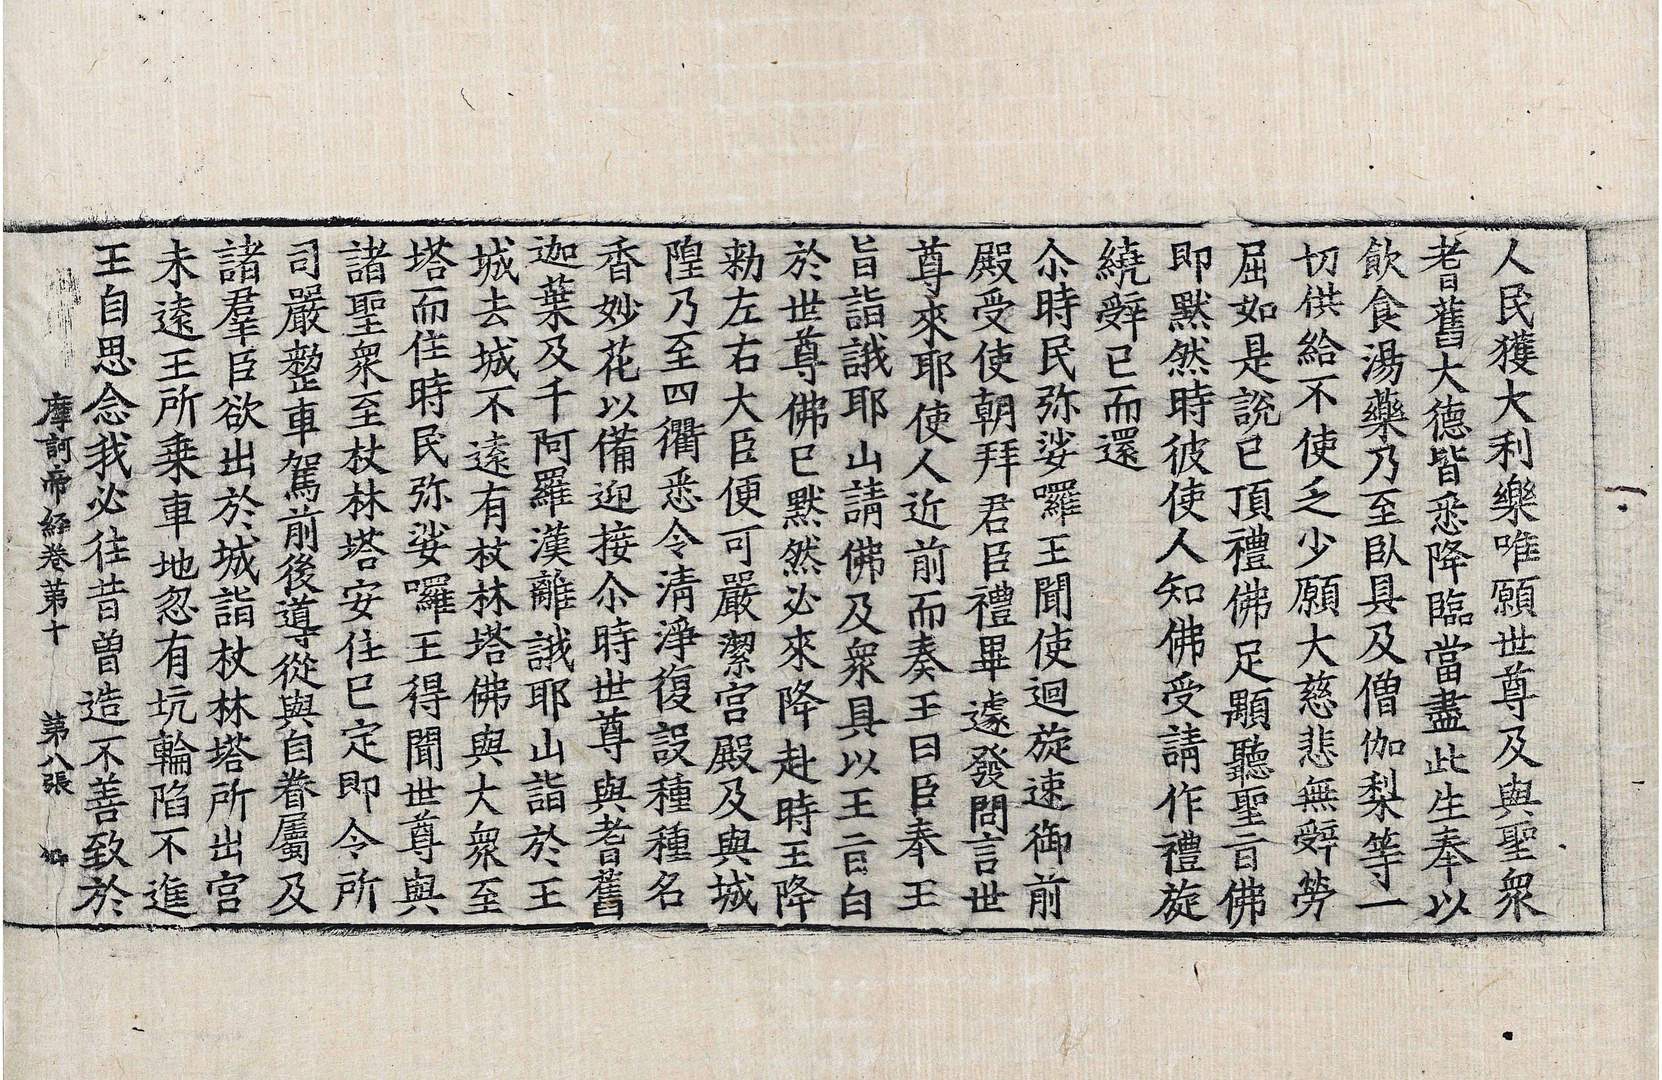 人民獲大利樂唯願世尊及與聖衆
耆舊大德皆悉降臨當盡此生奉以
飲食湯藥乃至臥具及僧伽梨等一
切供給不使乏少願大慈悲無辭勞
屈如是說已頂禮佛足顒聽聖旨佛
即默然時彼使人知佛受請作禮旋
繞辭已而還
尒時民弥娑囉王聞使迴旋速御前
殿受使朝拜君臣禮畢遽發問言世
尊來耶使人近前而奏王曰臣奉王
旨詣誐耶山請佛及衆具以王言白
於世尊佛已默然必來降赴時王降
勑左右大臣便可嚴潔宮殿及與城
隍乃至四衢悉令清淨復設種種名
香妙花以備迎接尒時世尊與耆舊
迦葉及千阿羅漢離誐耶山詣於王
城去城不遠有杖林塔佛與大衆至
塔而住時民弥娑囉王得聞世尊與
諸聖衆至杖林塔安住已定即令所
司嚴整車駕前後導從與自眷屬及
諸羣臣欲出於城詣杖林塔所出宮
未遠王所乗車地忽有坑輪陷不進
王自思念我必往昔曾造不善致於
摩訶帝経卷第十 第八張